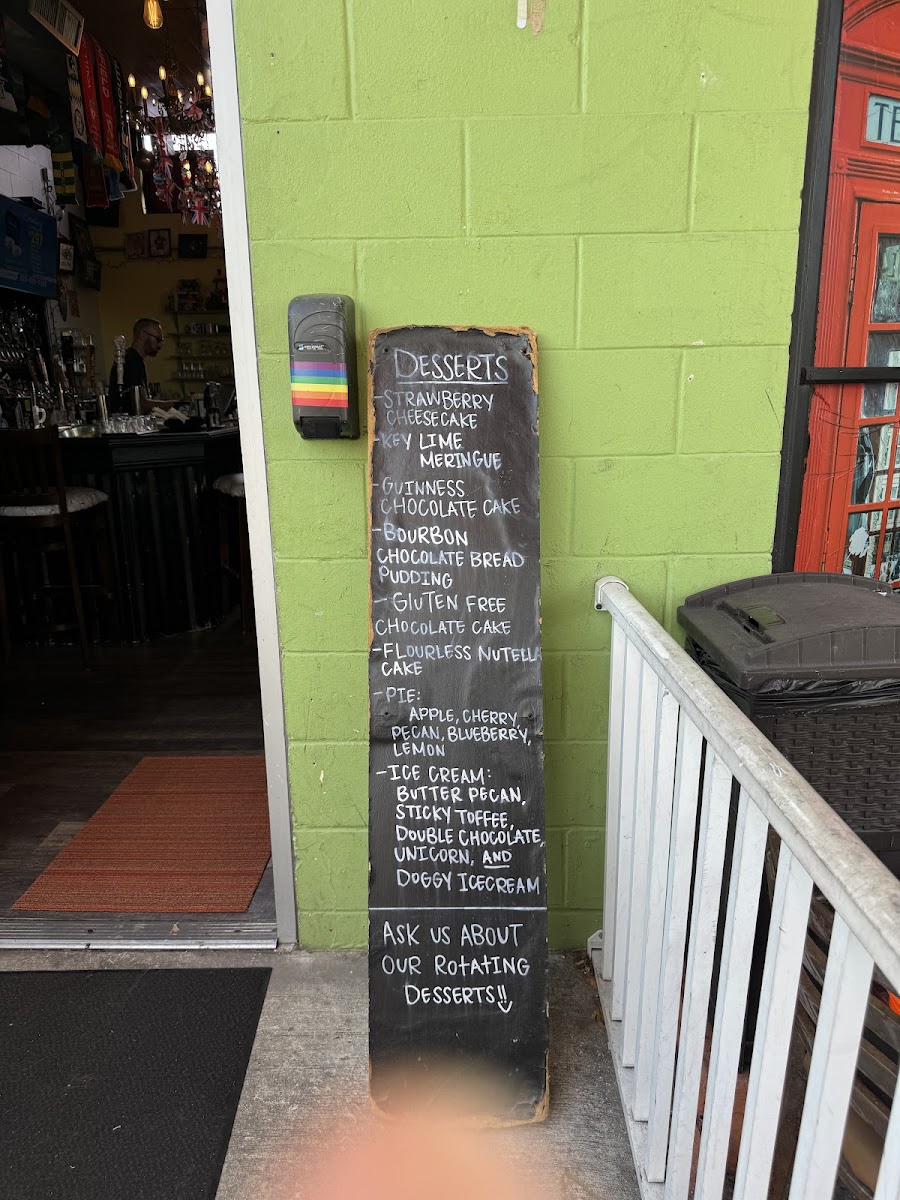 DESSERTS
-STRAWBERRY
CHEESECAKE
-KEY LIME
MERINGUE
-GUINNESS
CHOCOLATE CAKE
-BOURBON
CHOCOLATE BREAD
PUDDING
- GLUTEN FREE
CHOCOLATE CAKE
-FLOURLESS NUTELLA
CAKE
-PIE:
APPLE, CHERRY,
PECAN, BLUEBERRY,
LEMON
-ICE CREAM:
BUTTER PECAN,
STICKY TOFFEE,
DOUBLE CHOCOLATE,
UNICORN, AND
DOGGY ICECREAM
ASK US ABOUT
OUR ROtAtING
DESSERTS!!
TE